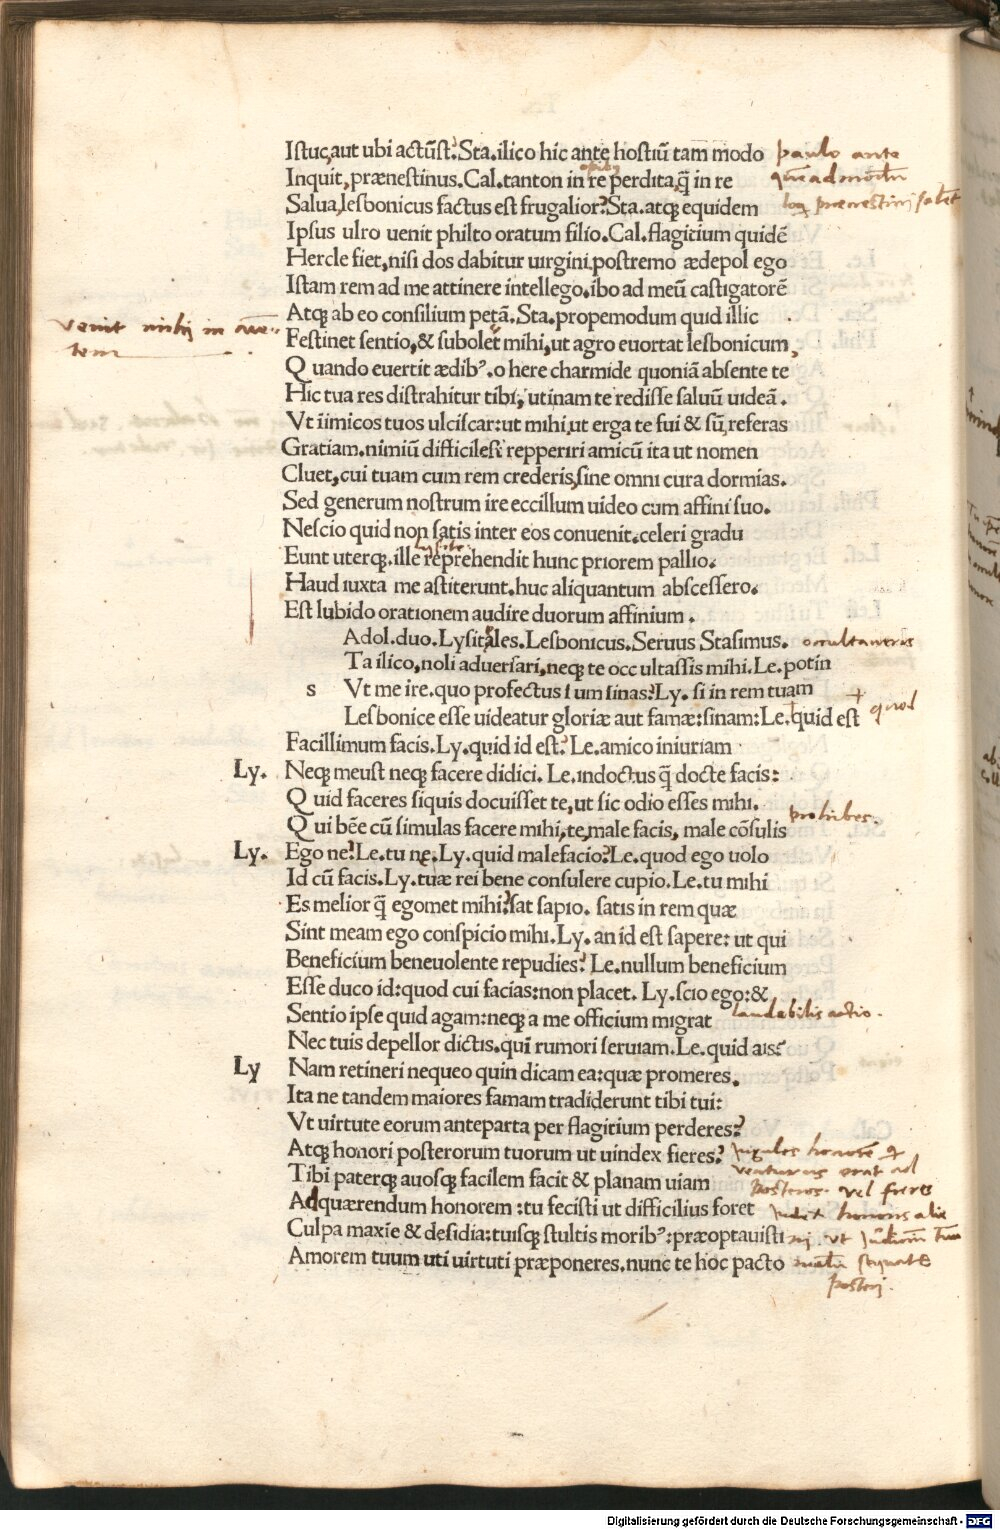 Istuc, aut ubi actũst? Sta. ilico hic ante hostiũ tam modo paulo ante
Inquit, prænestinus. Cal. tanton in re perdita, q̃ in re quẽadmodũ
Salua, lesbonicus factus est frugalior? Sta. atq; equidem
Ipsus ulro uenit philto oratum filio. Cal. flagitium quidẽ
Hercle fiet, nisi dos dabitur uirgini, postremo ædepol ego
Istam rem ad me attinere intellego. ibo ad meũ castigatorẽ
Atq; ab eo consilium petã. Sta. propemodum quid illic
venit mihi in
Festinet sentio, & subolet mihi, ut agro euortat lesbonicum,
tem
Quando euertit ædibꝰ. o here charmide quoniã absente te
Hic tua res distrahitur tibi, utinam te redisse saluũ uideã.
Vt iĩmicos tuos ulciscar: ut mihi, ut erga te fui & sũ, referas
Gratiam. nimiũ difficilest repperiri amicũ ita ut nomen
Cluet, cui tuam cum rem crederis, sine omni cura dormias.
Sed generum nostrum ire eccillum uideo cum affini suo.
Nescio quid non satis inter eos conuenit. celeri gradu
Eunt uterq;. ille reprehendit hunc priorem pallio.
Haud iuxta me astiterunt. huc aliquantum abscessero.
Est lubido orationem audire duorum affinium.
Adol. duo. Lysitales. Lesbonicus. Seruus Stasimus. occultaueris
Ta ilico, noli aduersari, neq; te occultassis mihi. Le. potin
s Vt me ire. quo profectus sum sinas? Ly. si in rem tuam
Lesbonice esse uideatur gloriæ aut famæ: sinam: Le. quid est quod
Facillimum facis. Ly. quid id est? Le. amico iniuriam
Ly. Neq; meust neq; facere didici. Le. indoctus q̃ docte facis:
Quid faceres siquis docuisset te, ut sic odio esses mihi.
prohibes.
Qui bẽe cũ simulas facere mihi, te, male facis, male cõsulis
Ly. Ego ne? Le. tu ne. Ly. quid malefacio? Le. quod ego uolo
Id cũ facis. Ly. tuæ rei bene consulere cupio. Le. tu mihi
Es melior q̃ egomet mihi? sat sapio. satis in rem quæ
Sint meam ego conspicio mihi. Ly. an id est sapere: ut qui
Beneficium beneuolente repudies? Le. nullum beneficium
Esse duco id: quod cui facias: non placet. Ly. scio ego: &
Sentio ipse quid agam: neq; a me officium migrat laudabilis actio.
Nec tuis depellor dictis. qui rumori seruiam. Le. quid ais?
Ly Nam retineri nequeo quin dicam ea: quæ promeres.
Ita ne tandem maiores famam tradiderunt tibi tui:
Vt uirtute eorum anteparta per flagitium perderes?
Atq; honori posterorum tuorum ut uindex fieres?
venturus erat ad
Tibi paterq; auosq; facilem facit & planam uiam
posteros. vel fieres
Adquærendum honorem: tu fecisti ut difficilius foret
Culpa maxĩe & desidia: tuisq; stultis moribꝰ: præoptauisti
Amorem tuum uti uirtuti præponeres. nunc te hoc pacto
posteri.
Digitalisierung gefördert durch die Deutsche Forschungsgemeinschaft - DFG